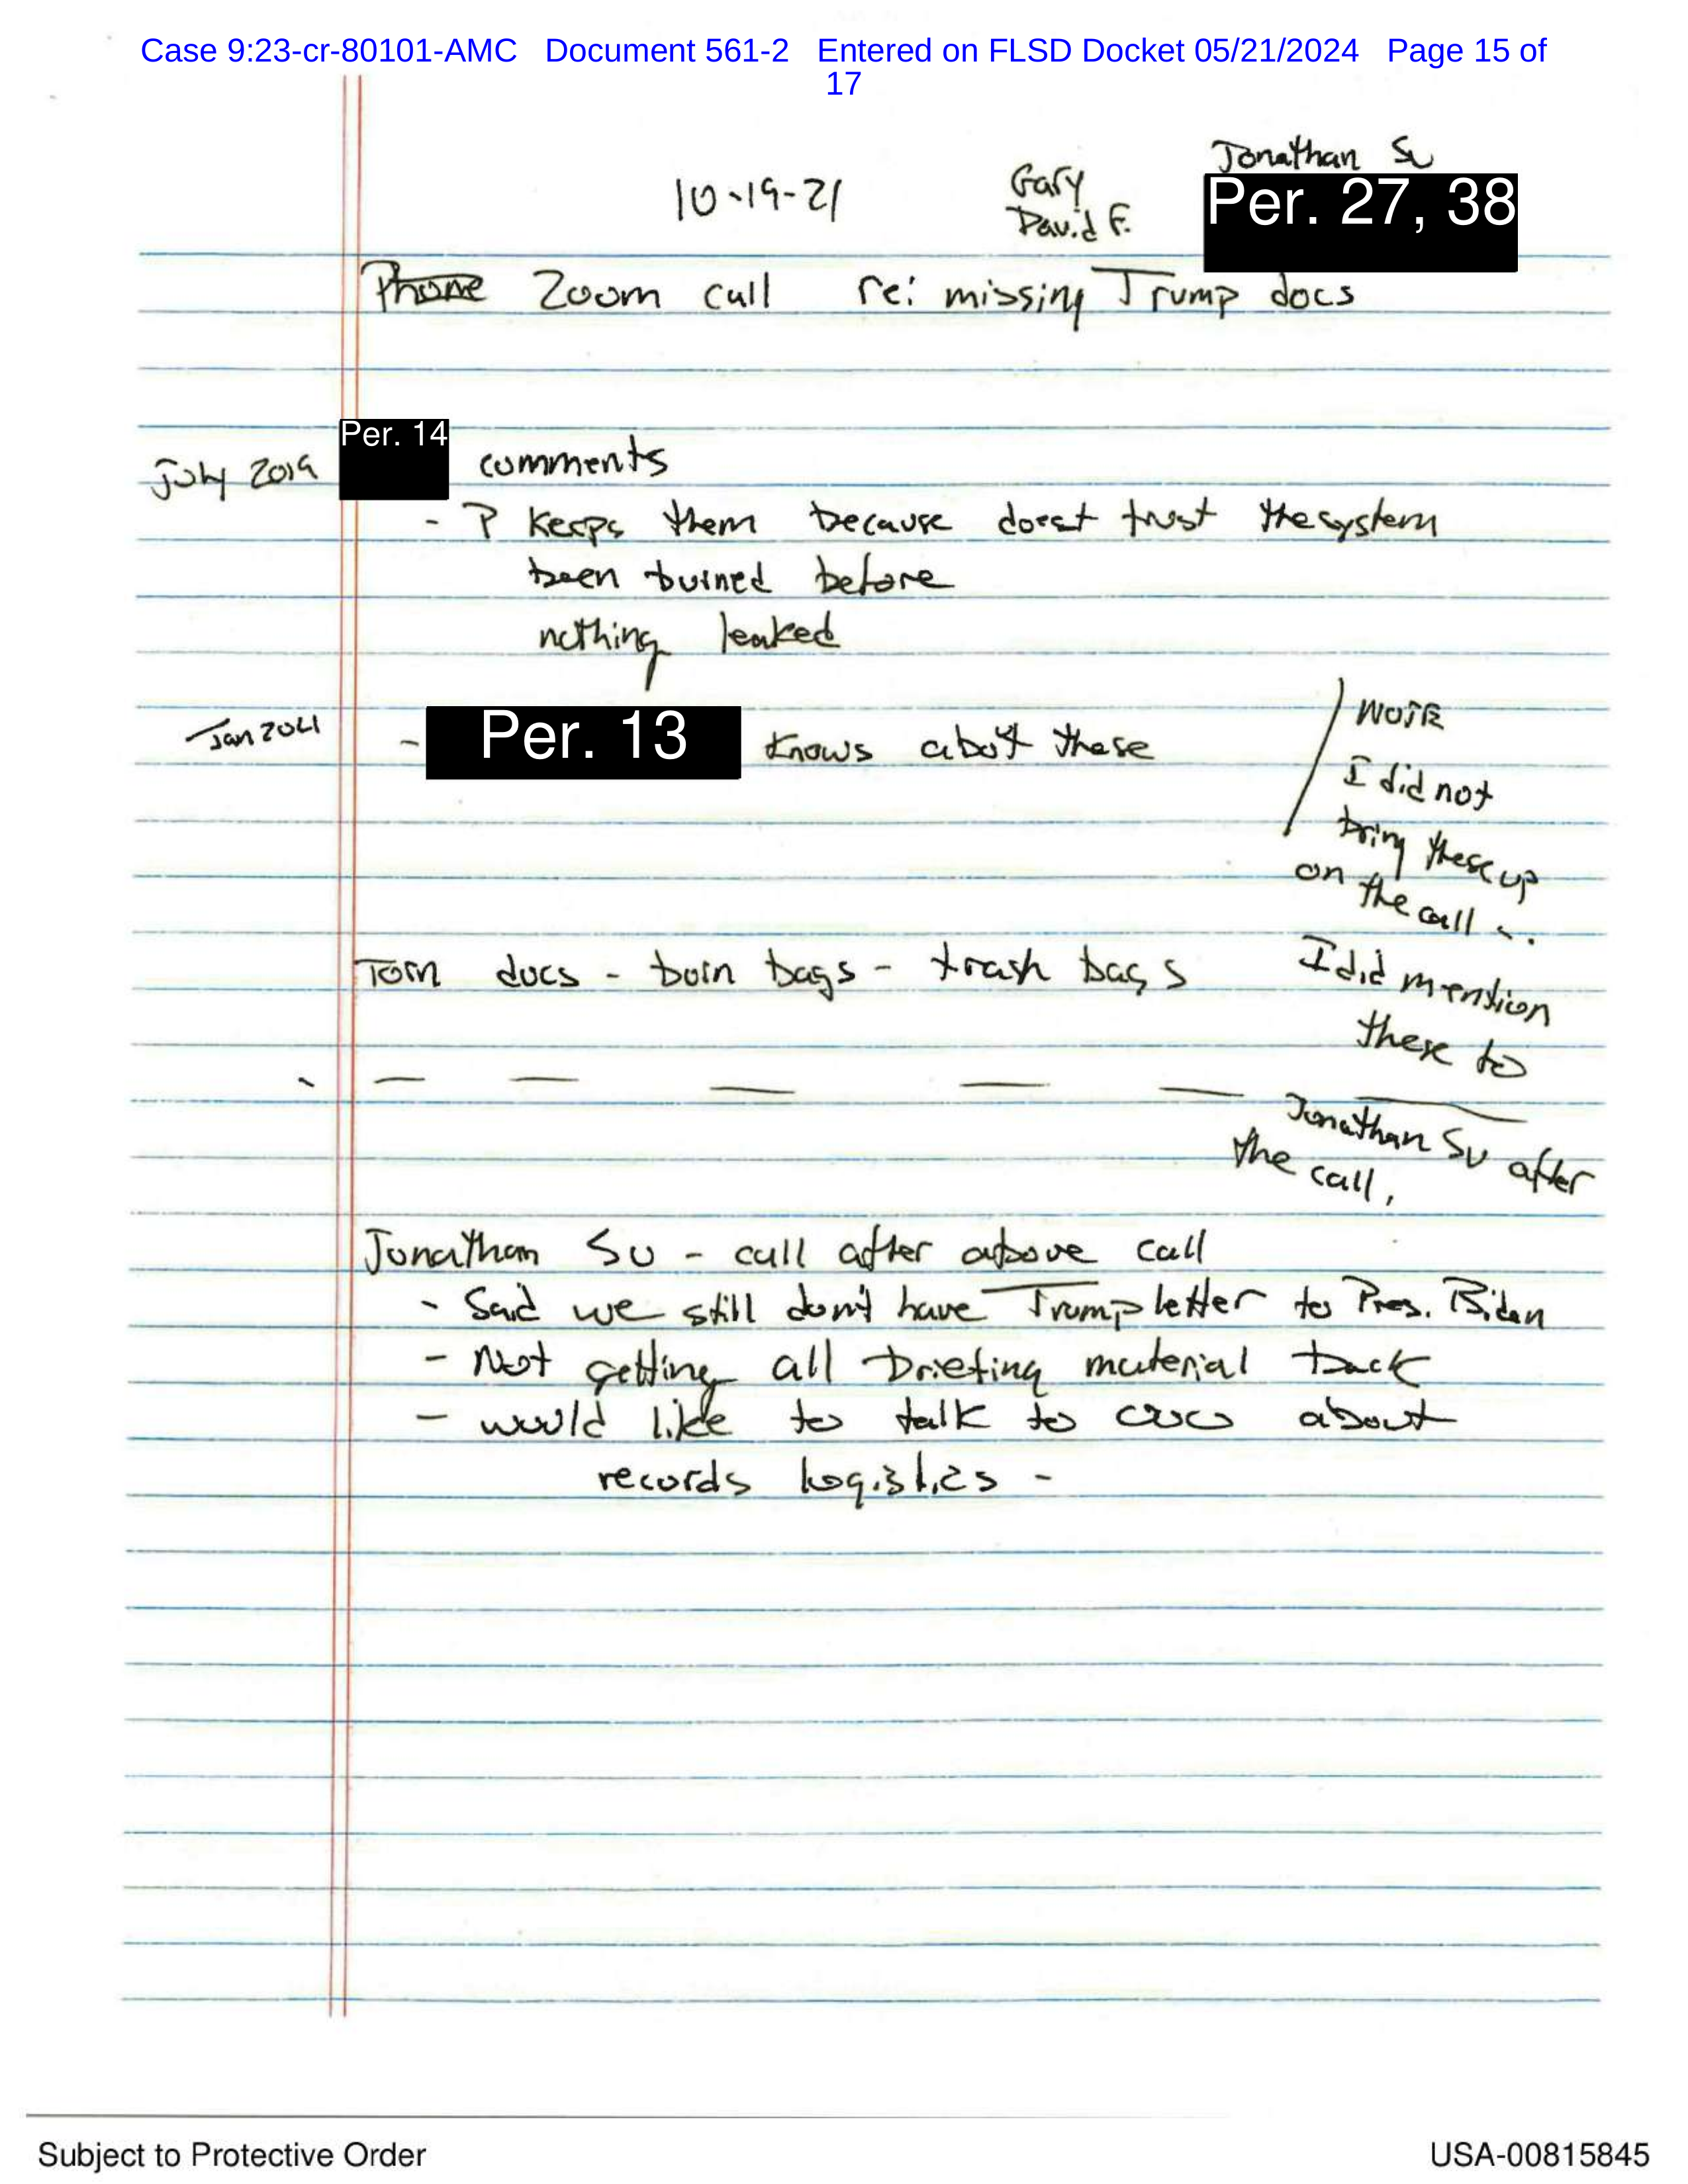 Case 9:23-cr-80101-AMC Document 561-2 Entered on FLSD Docket 05/21/2024 Page 15 of
17
10-19-21
Gary
David F.
Jonathan Su
Per. 27, 38
Phone Zoom call re: missing Trump docs
July 2019
Per. 14
comments
- P keeps them because doest trust the system
been burned before
nothing leaked
Jan 2021
- Per. 13 knows about these
NOTE
I did not
bring these up
on the call ...
I did mention
these to
Jonathan Su after
the call,
Torn docs - burn bags - trash bags
Jonathan Su - call after above call
- Said we still don't have Trump letter to Pres. Biden
- Not getting all briefing material back
- would like to talk to about
records logistics -
Subject to Protective Order
USA-00815845